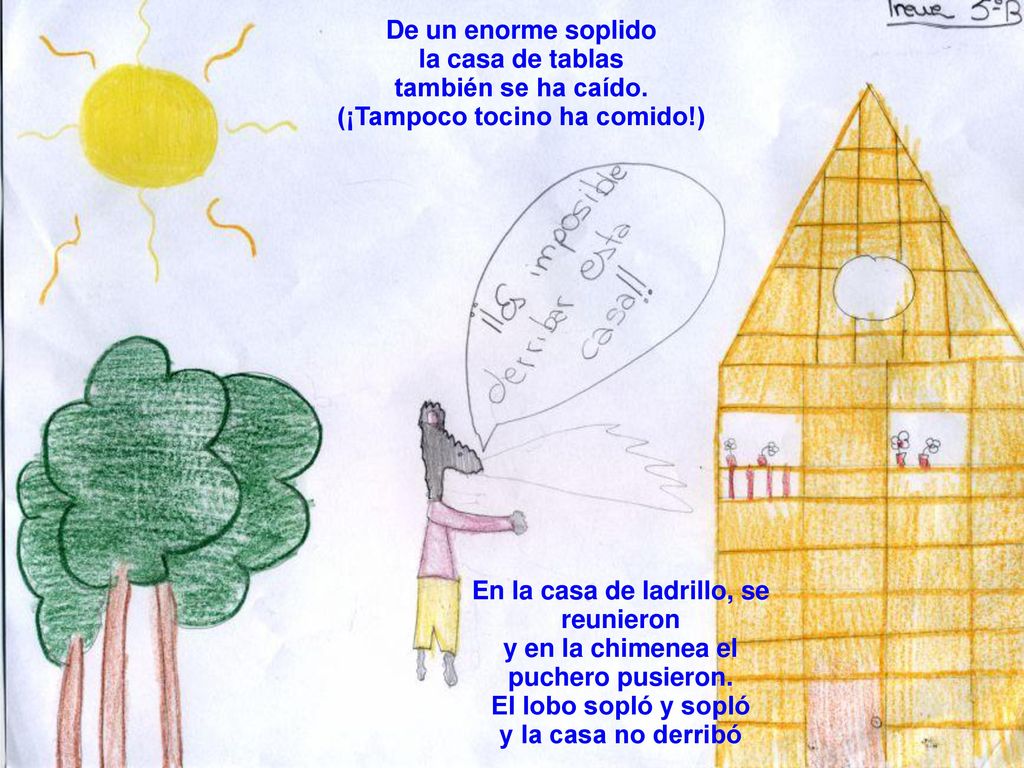 Irene 5ºB
De un enorme soplido
la casa de tablas
también se ha caído.
(¡Tampoco tocino ha comido!)
¡¡Es imposible
derribar esta
casa!!
En la casa de ladrillo, se
reunieron
y en la chimenea el
puchero pusieron.
El lobo sopló y sopló
y la casa no derribó